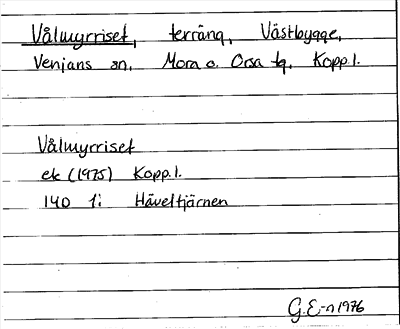 Vålmyrriset, terräng, Västbygge,
Venjans sn, Mora o. Orsa tg, Kopp. l.
Vålmyrriset
ek (1975) Kopp. l.
140 1i Häveltjärnen
G.E.-n 1976